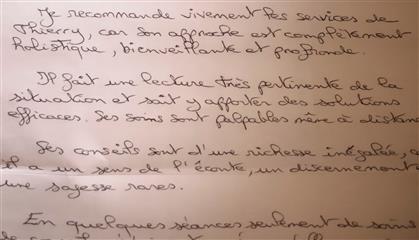 Je recommande vivement les services de
Thierry, car son approche est complètement
holistique, bienveillante et profonde.
Il fait une lecture très pertinente de la
situation et sait y apporter des solutions
efficaces. Ses soins sont palpables même à distan
Ses conseils sont d'une richesse inégalée, e
il a un sens de l'écoute, un discernement
une sagesse rares.
En quelques séances seulement de soins